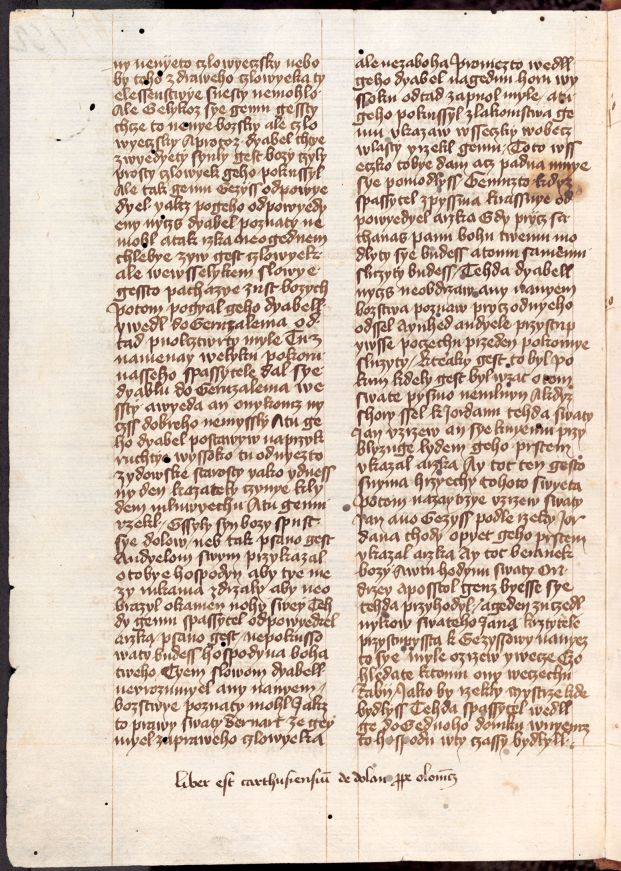 ny nenyeto czlowyeczsky nebo
by toho zdraweho czlowyeka ty
elessenstwye snesty nemohlo
Ale Gelykoz sye gemu gessty
chcze to nenye bozsky ale czlo
wyeczsky Aprotoz dyabel chtye
zwyedyety synly gest bozy czyly
prosty czlowyek geho pokussyl
Ale tak gemu Gezyss odpowye
dyel yakz pogeho odpowyedy
eny nyczs dyabel poznaty ne
mohl atak rzka neogednem
chlebye zyw gest czlowyek
ale wewsselykem slowye
gessto pachazye zust bozych
Potom pogyal geho dyabell
ywedl do Geruzalema od
tad puolcztwrty myle Tuz
znamenay welyku pokoru
nasseho spassytele dal sye
dyablu do Geruzalema we
ssty awyeda an onykomz ny
czss dobreho nemyssly Atu ge
ho dyabel postawyw naprzyk
ruchtye wyssoko tu odnyezto
zydowske starosty yako ydness
ny den kazateky czynye kly
dem mluwyechu Atu gemu
vzekl Gssyly syn bozy spust
sye dolow neb tak psano gest
Andyelom swym przykazal
otobye hospodyn aby tye na
zy rukama zdrzaly aby neo
brazyl okamen nohy swey Teh
dy gemu spassytel odpowyedyel
arzka psano gest nepokusso
waty budess hospodyna boha
tweho Tyem slowom dyabell
nerozumyel any nanyem
bozstwye poznaty mohl Jakz
to prawy swaty Bernart ze gey
myel zapraweho czlowyeka
ale nezaboha Promezto wedll
geho dyabel nagednu horu wy
ssoku odtad zapuol myle Ati
geho pokussyl zlakomstwa ge
mu vkazaw wsseczky wobecz
wlasty yrzekl gemu Toto wss
eczko tobye dam acz padna mnye
sye pomodlyss Gemuzto kdyz
spassytel zpyssma krassnye od
powyedyel arzka Gdy prycz sa
thanas panu bohu twemu mo
dlyty sye budess atomu samemu
sluzyty budess Tehda dyabell
nyczs neobdrzaw any nanyem
bozstwa poznaw prycz odnyeho
odssel Aynhed andyele przystup
ywsse poczechu przeden pokornye
sluzyty Kteraky gest to byl po
kun kdely gest byl wzat o tom
swate pysmo nemluwy Akdyz
schow ssel k Jordanu tehda swaty
Jan vzrzew an sye knyemu przy
blyzuge lydem geho prstem
vkazal arzka Ay toc ten gesto
snyma hrzyechy tohoto swyeta
Potom nazaytrzye vzrzew swaty
Jan ano Gezyss podle rzeky Jor
dana chody opyet geho prstem
vkazal arzka Ay toc beranek
bozy Awtu hodynu swaty On
drzey apostol genz byesse sye
tehda przyhodyl ageden zuczedl
nykow swateho Jana krztytele
przystupyssta k Gezyssowy nanyez
to sye myle ozrzew ywecze Czo
hledate ktomu ony weczechu
Rabu Jako by rzekly mystrze kde
bydlyss Tehda spassytel wedll
ge doGednoho domku wnyemz
to hospodu wty czassy bydlyll
liber est carthusiensiu de dolan ppe olomucz